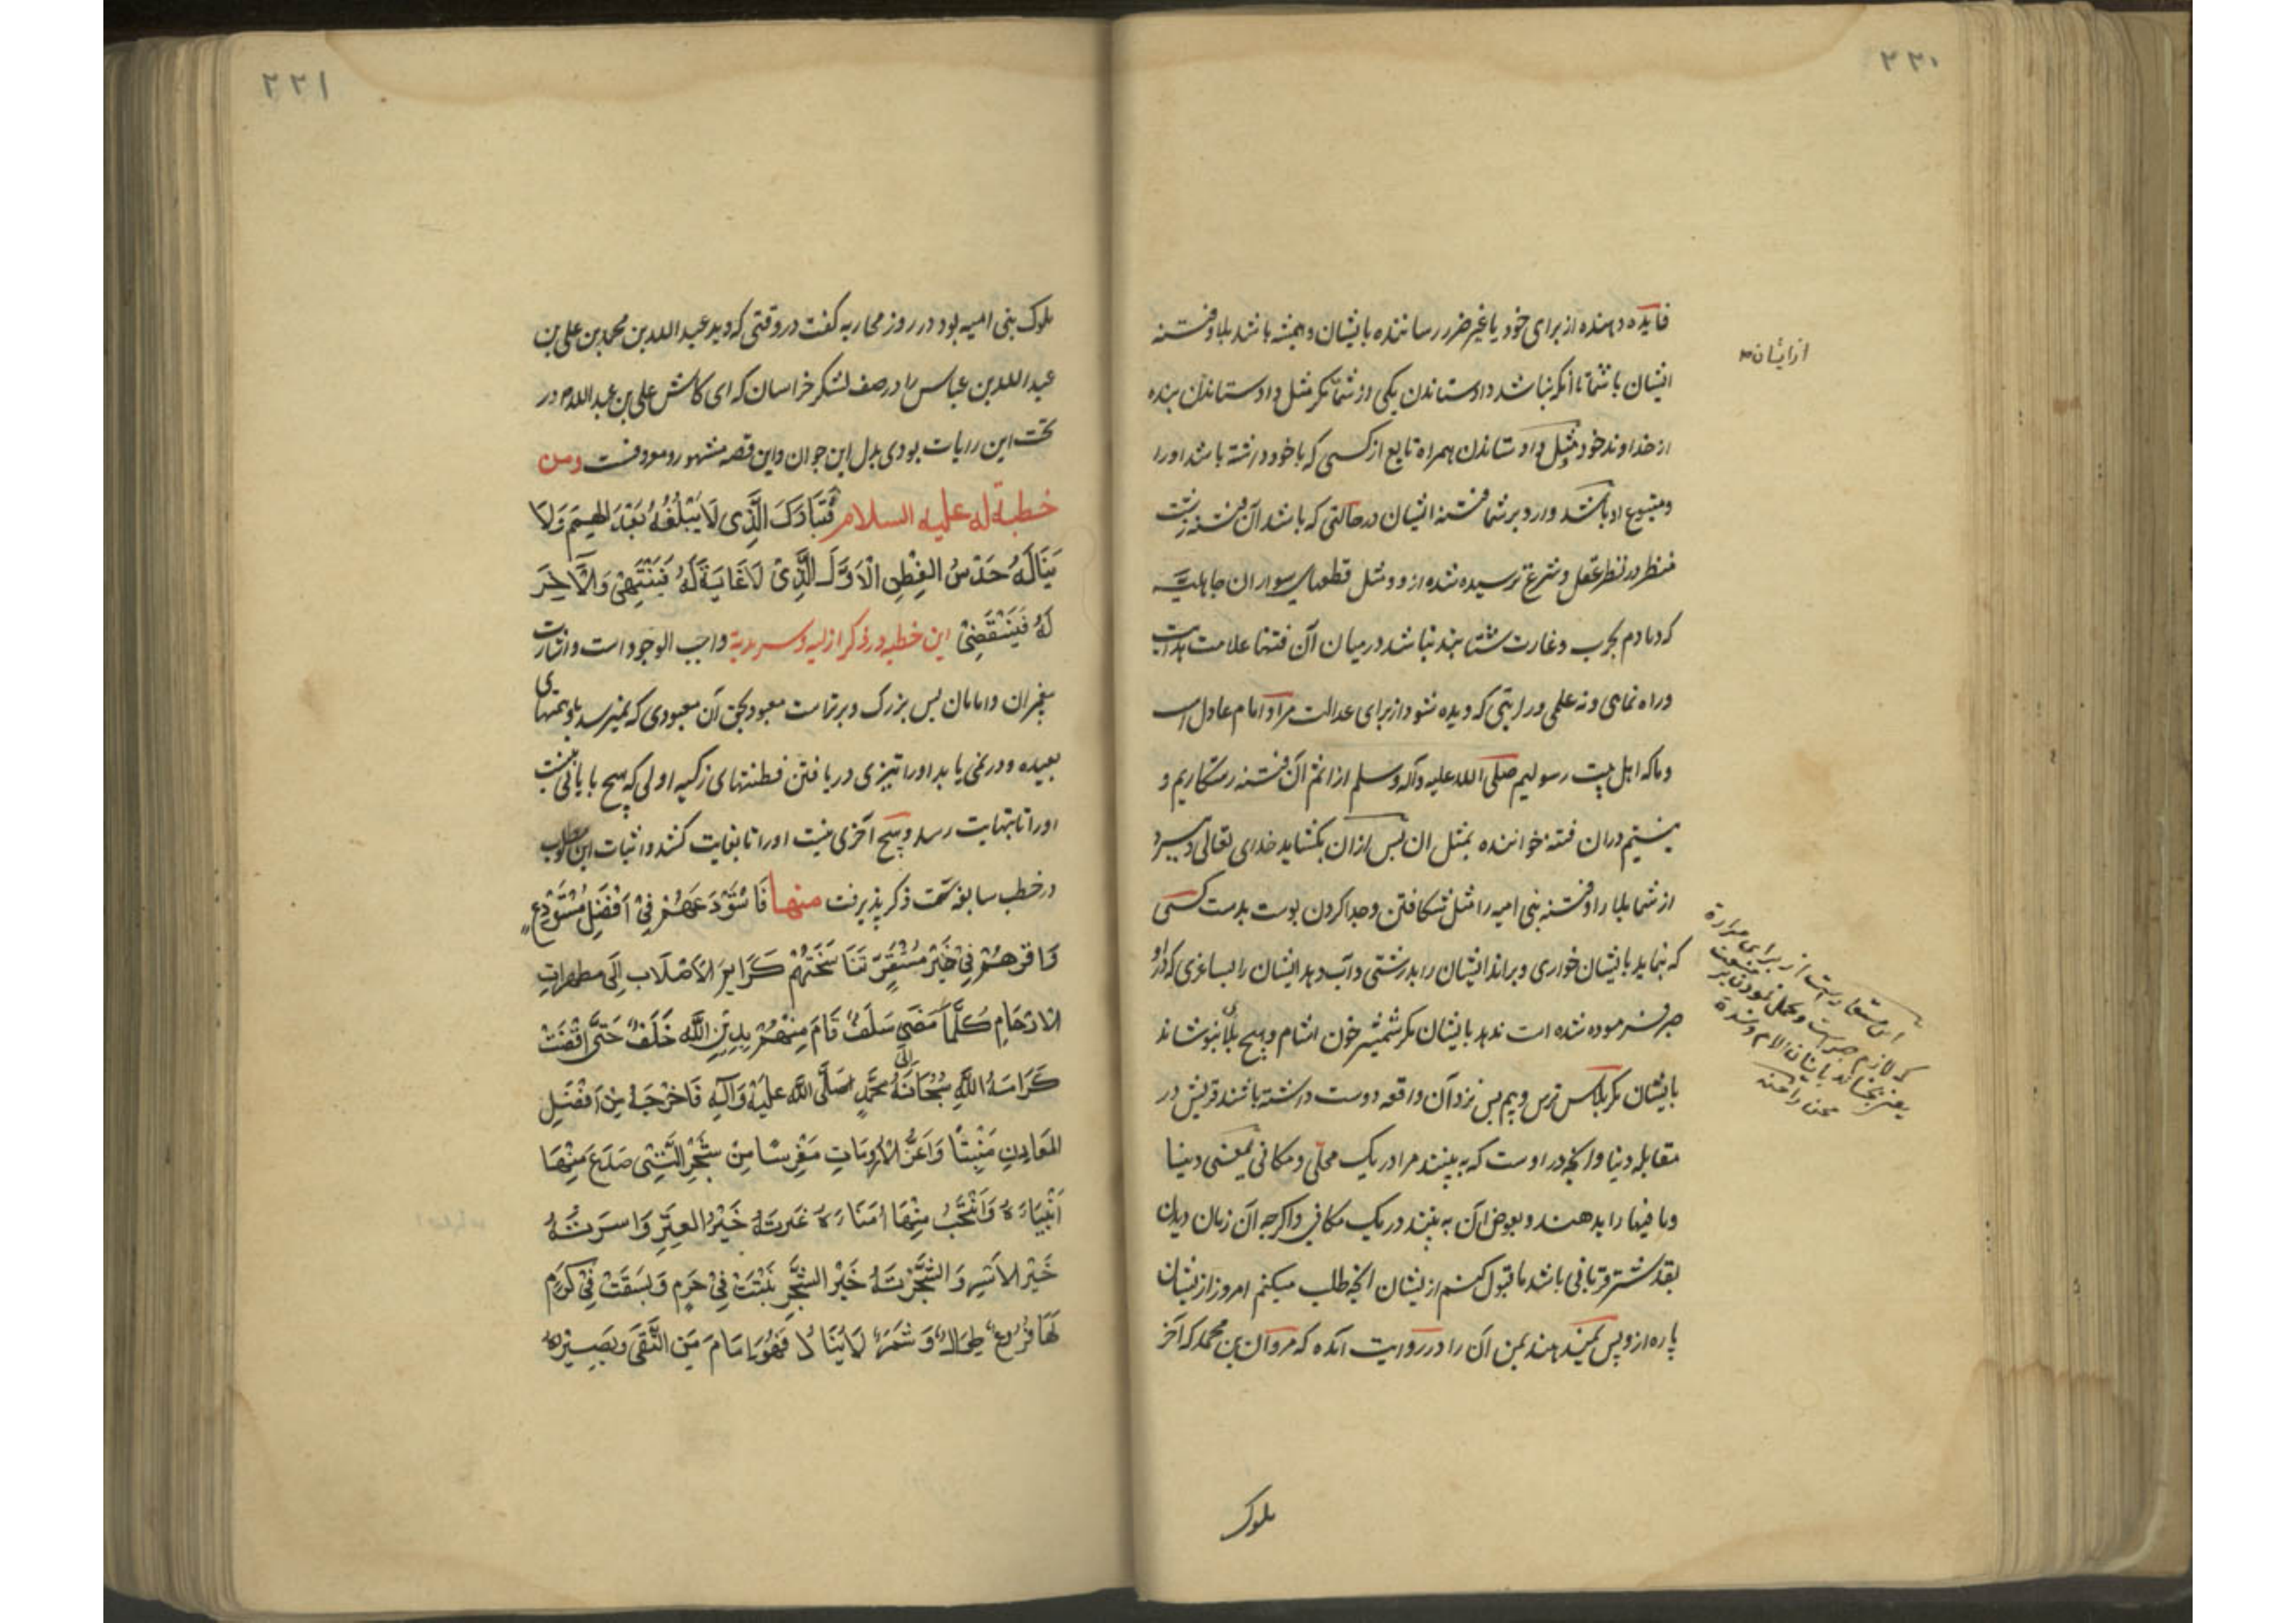 ٢٢٠
فایده دهنده از برای خود یا غیر ضرر رساننده بایشان و همیشه باشد بلا و فتنه
از ایشان
ایشان با شما تا آنکه نباشد داد ستاندن یکی از شما مگر مثل داد ستاندن بنده
از خداوند خود و مثل داد ستاندن همراه تابع از کسی که با خود داشته باشد او را
و متبوع او باشد وارد بر شما فتنه ایشان در حالتی که باشد آن فتنه زشت
منظر در نظر عقل و شرع ترسیده شده از او و مثل قطعهای سواران جاهلیة
که دمادم بحرب و غارت شتابند نباشد درمیان آن فتنها علامت هدایت
و راه نمای و نه علمی و رایتی که دیده شود از برای عدالت مراد امام عادل است
و ما که اهل بیت رسولیم صلی الله علیه وآله وسلم از اثم آن فتنه رستگاریم و
نیستیم در آن فتنه خواننده بمثل آن پس از آن بکشاید خدای تعالی و ببرد
از شما بلیا را و فتنه بنی امیه را مثل شکافتن و جدا کردن پوست بدست کسی
که بنماید بایشان خواری و براند ایشان را بدرشتی و آب دهد ایشان را بساغری که در او
این استعاره است از برای مرارة
که لازم صبر است
یعنی بچشاند بایشان آلام و شدة
محن را
صبر فرموده شده است ندهد بایشان مگر شمشیر خون آشام و هیچ بلای نپوشاند
بایشان مگر پلاس ترس و بیم پس نزد آن واقعه دوست داشته باشند قریش در
مقابله دنیا و آنچه در اوست که به بینند مرا در یک محلی و مکانی یعنی دنیا
و ما فیها را بدهند و بعوض آن به بینند در یک مکانی و اگرچه آن زمان دیدن
بقدر شتر قربانی باشد تا قبول کنم از یشان آنچه طلب میکنم امروز از یشان
پاره از و پس نمیدهند بمن آن را در روایت آمده که مروان بن محمد که آخر
ملوک
٢٢١
ملوک بنی امیه بود در روز محاربه گفت در وقتی که دید عبد الله بن محمد بن علی بن
عبد الله بن عباس را در صف لشکر خراسان که ای کاش علی بن عبد الله در
تحت این رایات بودی بدل این جوان و این قصه مشهور و معروفست ومن
خطبة له علیه السلام فَتَبَارَكَ الَّذِی لَا یَبْلُغُهُ بُعْدَ الهِمَمِ وَلَا
یَنَالُهُ حَدْسُ الفِطَنِ الْاَوَّلُ الَّذِیْ لَا غَایَةَ لَهُ فَیَنْتَهِیْ وَلَا آخِرَ
لَهُ فَیَنْقَضِیْ این خطبه در ذکر ازلیه و سرمدیة واجب الوجود است و اشارت
پیغمبران و امامان پس بزرک و برتراست معبود بحق آن معبودی که نمیرسد باو همتهای
بعیده و درنمی یابد او را تیزی دریافتن فطنتهای زکیه اولی که هیچ پایانی نیست
او را تا بنهایت رسد و هیچ آخری نیست او را تا بغایت کشد و اثبات این مطلوب
در خطب سابقه سمت ذکر پذیرفت منها فَاسْتَوْدَعَهُمْ فِیْ اَفْضَلِ مُسْتَوْدَعٍ
وَاَقَرَّهُمْ فِیْ خَیْرِ مُسْتَقَرٍّ تَنَاسَخَتْهُمْ كَرَایِمُ الاَصْلَابِ اِلَی مطهرات
الارْحَامِ كُلَّمَا مَضَی سَلَفٌ قَامَ مِنْهُمْ بِدِیْنِ اللَّهِ خَلَفٌ حَتَّی اَفْضَتْ
كَرَامَةُ اللَّهِ سُبْحَانَهُ اِلَی مُحَمَّدٍ صَلَّی اللَّه عَلَیْهِ وَآلِهِ فَاَخْرَجَهُ مِنْ اَفْضَلِ
المَعَادِنِ مَنْبِتًا وَاَعَزِّ الْاَرُومَاتِ مَغْرِسًا مِنْ الشَّجَرِ الَّتِی صَدَعَ مِنْهَا
اَنْبِیَاءَهُ وَانْتَجَبَ مِنْهَا اُمَنَاءَهُ عِتْرَتُهُ خَیْرُ العِتَرِ وَاسرَتُهُ
خَیْرُ الاُسَرِ وَالشَّجَرْتَهُ خَیْرُ الشَّجَرِ نَبَتَتْ فِیْ حَرَمٍ وَبَسَقَتْ فِیْ كَرَمٍ
لَهَا فُرُوعٌ طِوَالٌ وَثَمَرٌ لَا یُنَالُ فَهُوَ اِمَامُ مَنِ اتَّقَی وبَصِیْرَة